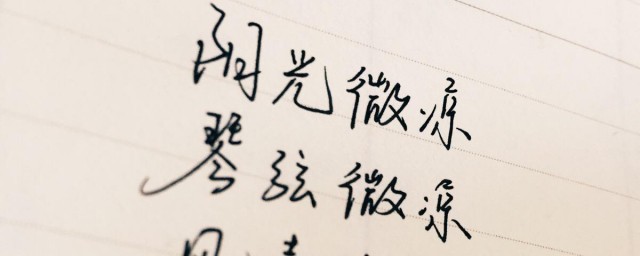 阳光微凉
琴弦微凉